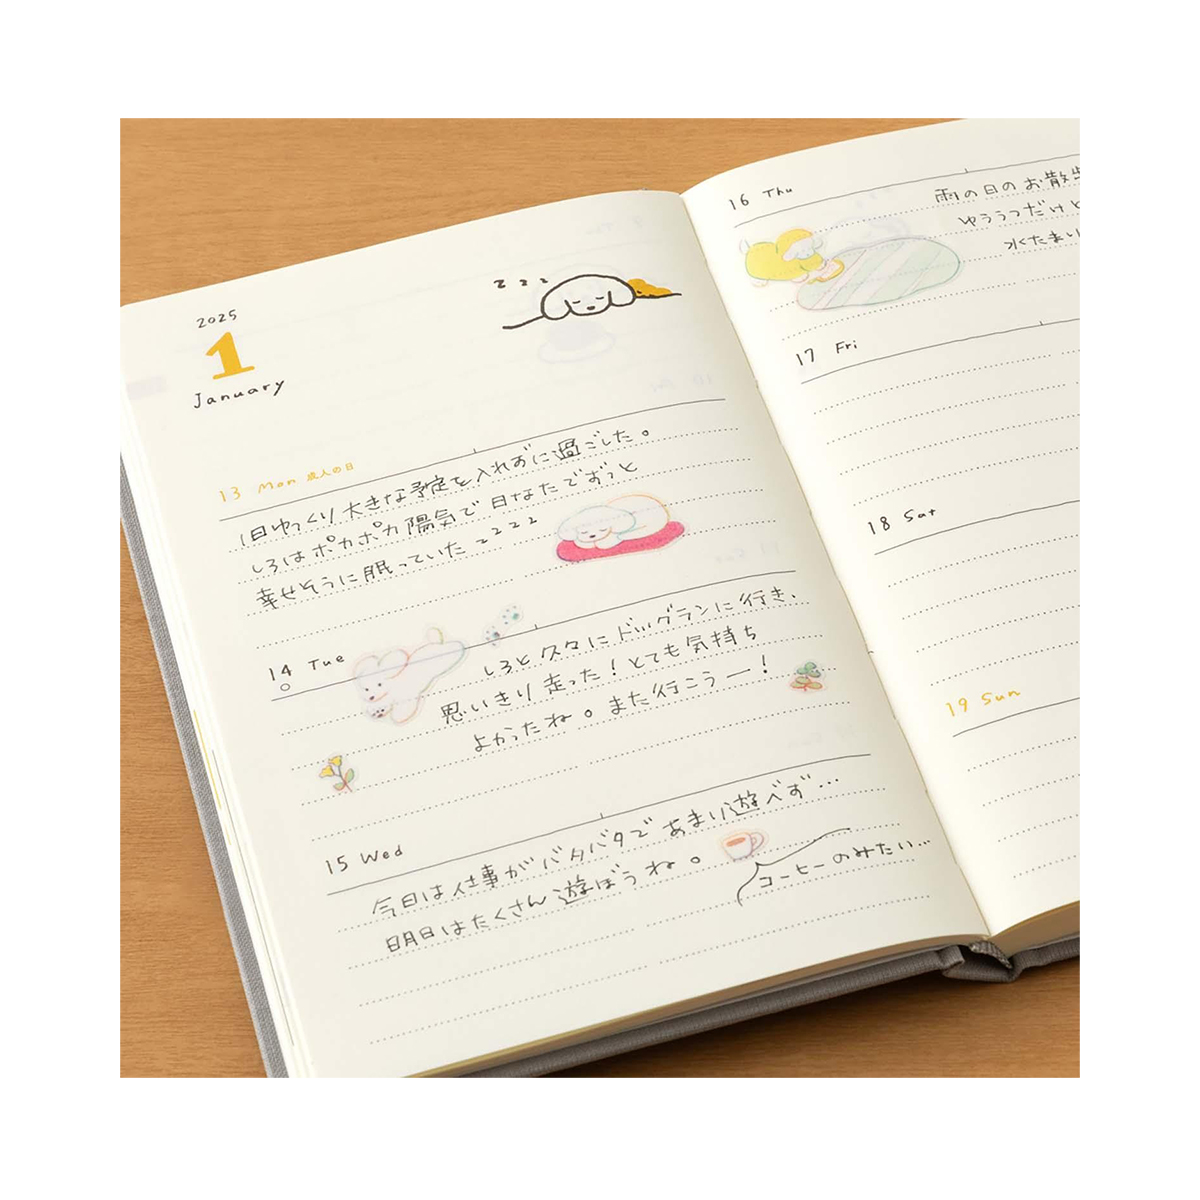 2025
1
January
z z z
13 Mon 成人の日
1日ゆっくり大きな予定を入れずに過ごした。
しろはポカポカ陽気で日なたでずっと
幸せそうに眠っていた zzz
14 Tue
しろと久々にドッグランに行き、
思いきり走った!とても気持ち
よかったね。また行こうー!
15 Wed
今日は仕事がバタバタであまり遊べず…
明日はたくさん遊ぼうね。
コーヒーのみたい…
16 Thu
雨の日のお散歩
ゆううつだけど
水たまり
17 Fri
18 Sat
19 Sun